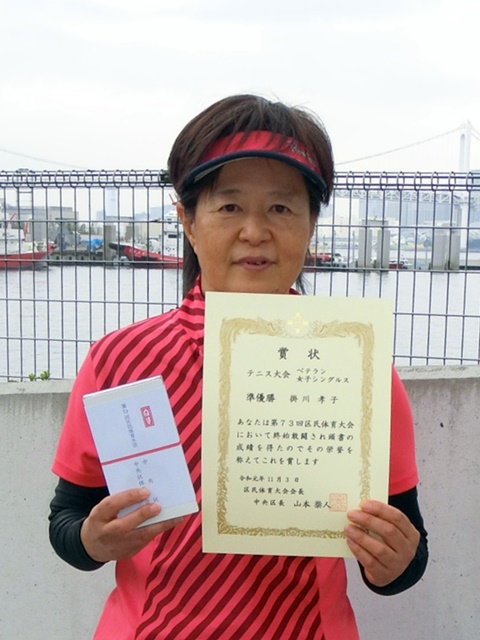 賞状
テニス大会 ベテラン
女子シングルス
準優勝 掛川 孝子
あなたは第73回区民体育大会
において終始敢闘され頭書の
成績を得たのでその栄誉を
称えてこれを賞します
令和元年11月3日
区民体育大会会長
中央区長 山本 泰人